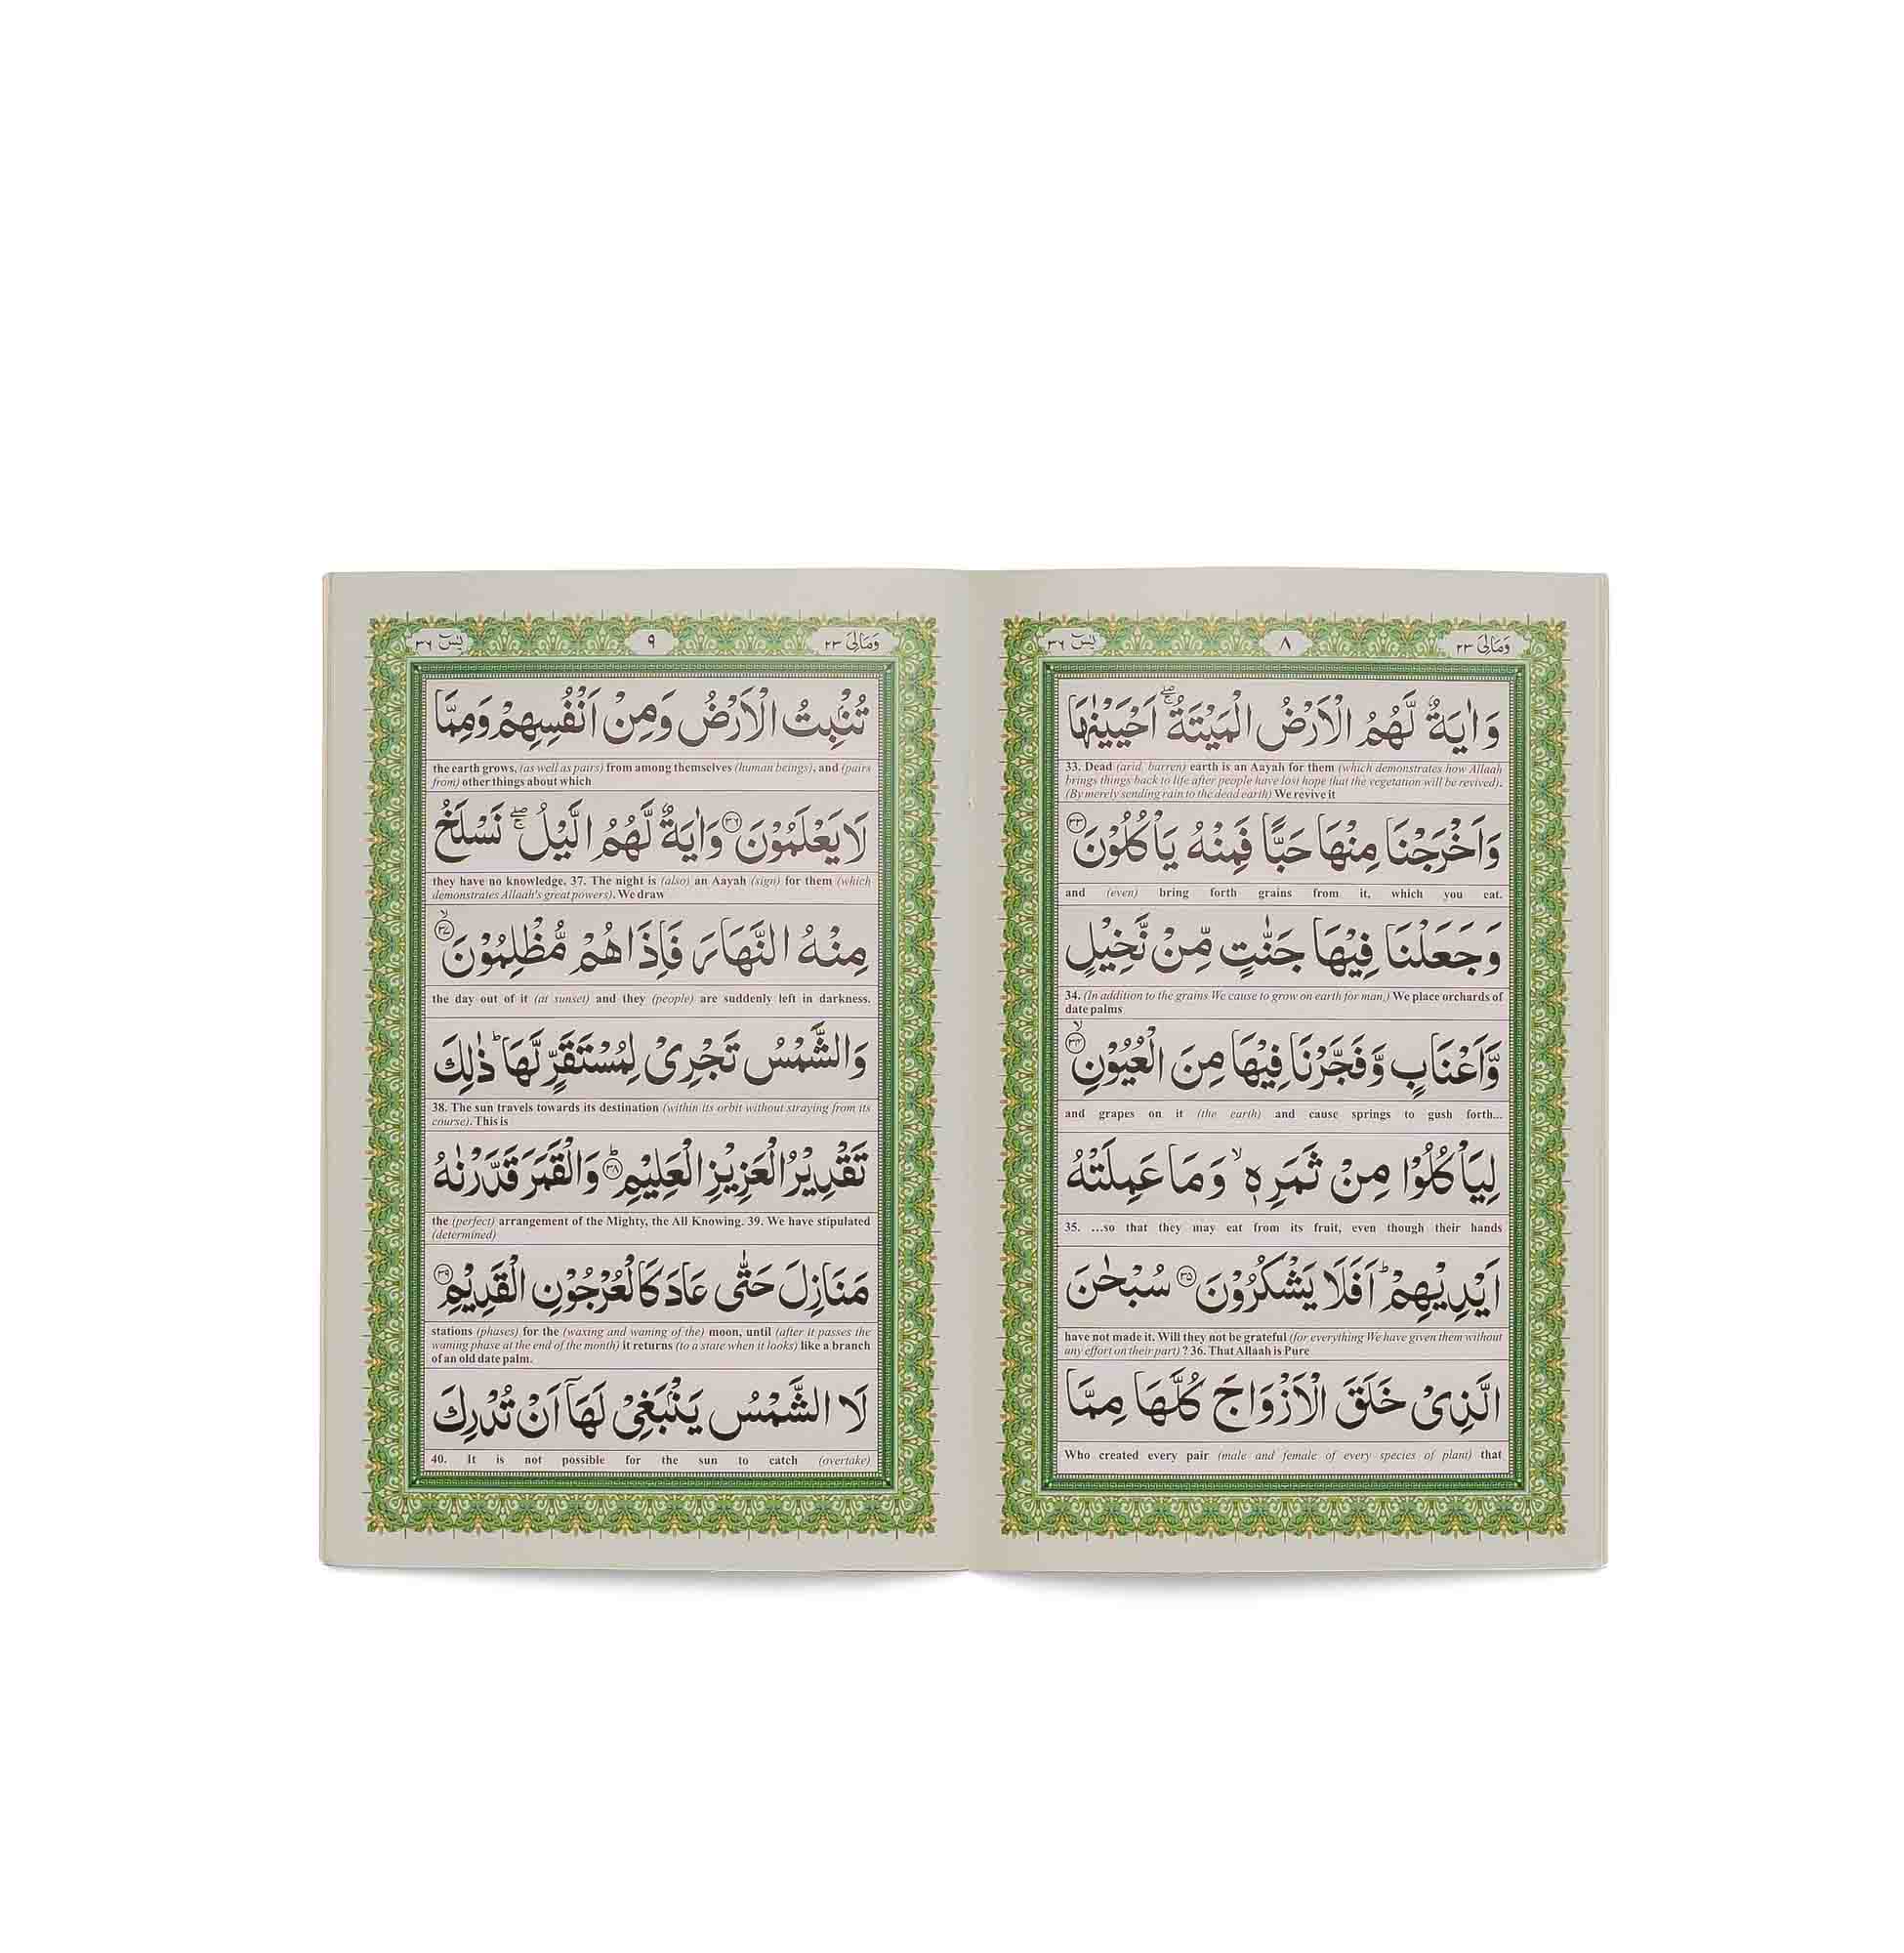 وَمَالِىَ ٢٣
٨
يٰسٓ ٣٦
وَاٰيَةٌ لَّهُمُ الْاَرْضُ الْمَيْتَةُ ۖۚ اَحْيَيْنٰهَا
33. Dead (arid, barren) earth is an Aayah for them (which demonstrates how Allaah
brings things back to life after people have lost hope that the vegetation will be revived).
(By merely sending rain to the dead earth) We revive it
وَاَخْرَجْنَا مِنْهَا حَبًّا فَمِنْهُ يَاْكُلُوْنَ ٣٣
and (even) bring forth grains from it, which you eat.
وَجَعَلْنَا فِيْهَا جَنّٰتٍ مِّنْ نَّخِيْلٍ
34. (In addition to the grains We cause to grow on earth for man,) We place orchards of
date palms
وَّاَعْنَابٍ وَّفَجَّرْنَا فِيْهَا مِنَ الْعُيُوْنِ ۙ ٣٤
and grapes on it (the earth) and cause springs to gush forth...
لِيَاْكُلُوْا مِنْ ثَمَرِهٖ ۙ وَمَا عَمِلَتْهُ
35. ...so that they may eat from its fruit, even though their hands
اَيْدِيْهِمْ ؕ اَفَلَا يَشْكُرُوْنَ ٣٥ سُبْحٰنَ
have not made it. Will they not be grateful (for everything We have given them without
any effort on their part) ? 36. That Allaah is Pure
الَّذِىْ خَلَقَ الْاَزْوَاجَ كُلَّهَا مِمَّا
Who created every pair (male and female of every species of plant) that
وَمَالِىَ ٢٣
٩
يٰسٓ ٣٦
تُنْۢبِتُ الْاَرْضُ وَمِنْ اَنْفُسِهِمْ وَمِمَّا
the earth grows, (as well as pairs) from among themselves (human beings), and (pairs
from) other things about which
لَا يَعْلَمُوْنَ ٣٦ وَاٰيَةٌ لَّهُمُ الَّيْلُ ۖۚ نَسْلَخُ
they have no knowledge. 37. The night is (also) an Aayah (sign) for them (which
demonstrates Allaah's great powers). We draw
مِنْهُ النَّهَارَ فَاِذَا هُمْ مُّظْلِمُوْنَ ۙ ٣٧
the day out of it (at sunset) and they (people) are suddenly left in darkness.
وَالشَّمْسُ تَجْرِىْ لِمُسْتَقَرٍّ لَّهَا ؕ ذٰلِكَ
38. The sun travels towards its destination (within its orbit without straying from its
course). This is
تَقْدِيْرُ الْعَزِيْزِ الْعَلِيْمِ ؕ ٣٨ وَالْقَمَرَ قَدَّرْنٰهُ
the (perfect) arrangement of the Mighty, the All Knowing. 39. We have stipulated
(determined)
مَنَازِلَ حَتّٰى عَادَ كَالْعُرْجُوْنِ الْقَدِيْمِ ٣٩
stations (phases) for the (waxing and waning of the) moon, until (after it passes the
waning phase at the end of the month) it returns (to a state when it looks) like a branch
of an old date palm.
لَا الشَّمْسُ يَنْۢبَغِىْ لَهَاۤ اَنْ تُدْرِكَ
40. It is not possible for the sun to catch (overtake)